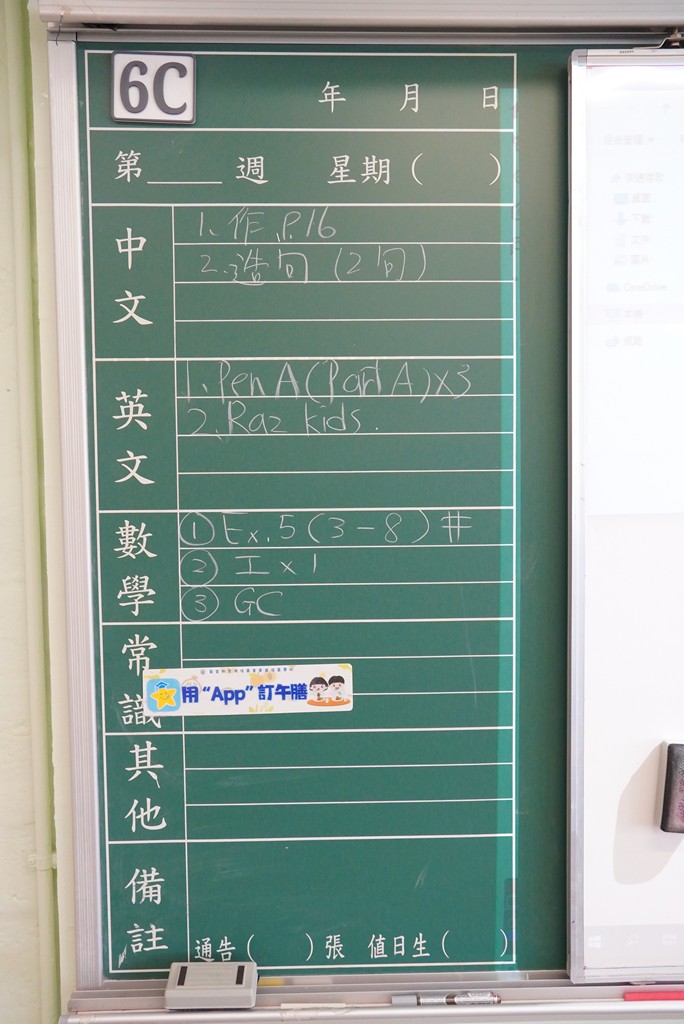 6C
年 月 日
第 週 星期( )
中文
1. 作 P.16
2. 造句 (2句)
英文
1. Pen A (Part A) x3
2. Raz kids.
數學
① Ex. 5 (3-8) #
② 工 x 1
③ GC
常識
用“App”訂午膳
其他
備註
通告( )張 值日生( )
OneDrive